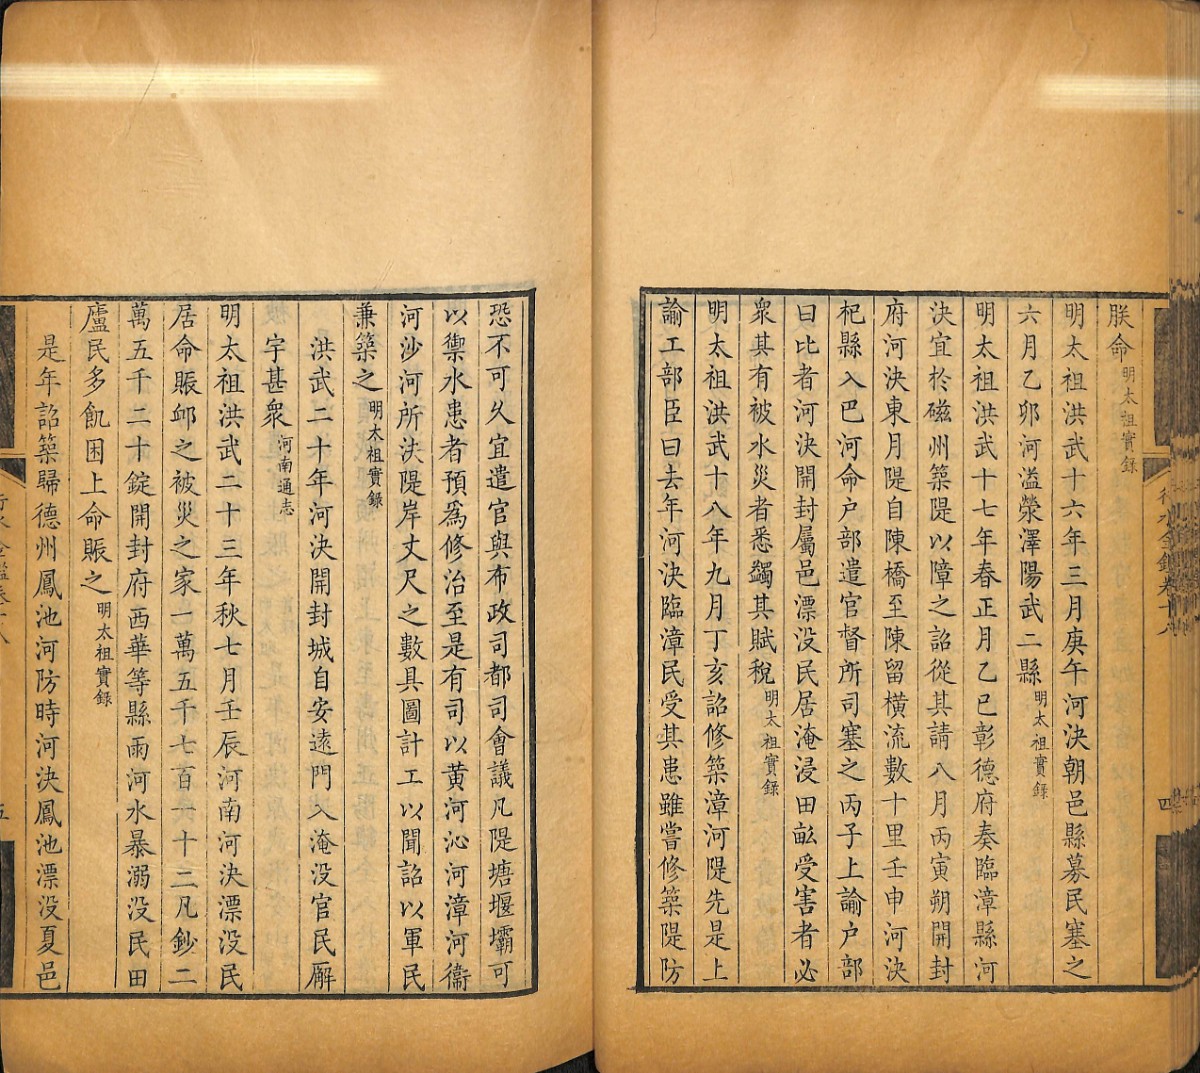 朕命明太祖實錄
明太祖洪武十六年三月庚午河決朝邑縣募民塞之
六月乙卯河溢滎澤陽武二縣明太祖實錄
明太祖洪武十七年春正月乙巳彰德府奏臨漳縣河
決宜於磁州築隄以障之詔從其請八月丙寅朔開封
府河決東月隄自陳橋至陳留橫流數十里壬申河決
杞縣入巴河命户部遣官督所司塞之丙子上諭户部
曰比者河決開封屬邑漂没民居淹浸田畝受害者必
衆其有被水災者悉蠲其賦稅明太祖實錄
明太祖洪武十八年九月丁亥詔修築漳河隄先是上
諭工部臣曰去年河決臨漳民受其患雖嘗修築隄防
行水金鑑卷十八
四
恐不可久宜遣官與布政司都司會議凡隄塘堰壩可
以禦水患者預爲修治至是有司以黄河沁河漳河衞
河沙河所決隄岸丈尺之數具圖計工以聞詔以軍民
兼築之明太祖實錄
洪武二十年河決開封城自安遠門入淹没官民廨
宇甚衆河南通志
明太祖洪武二十三年秋七月壬辰河南河決漂没民
居命賑卹之被災之家一萬五千七百六十二凡鈔二
萬五千二十錠開封府西華等縣雨河水暴溺没民田
廬民多飢困上命賑之明太祖實錄
是年詔築歸德州鳳池河防時河決鳳池漂没夏邑
行水金鑑卷十八
五